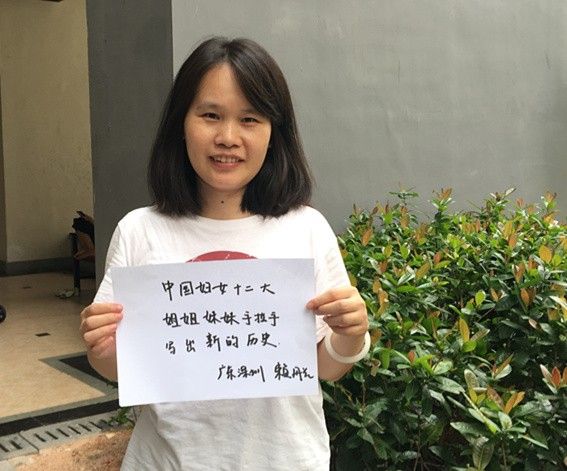 中国妇女十二大
姐姐妹妹手拉手
写出新的历史.
广东深圳